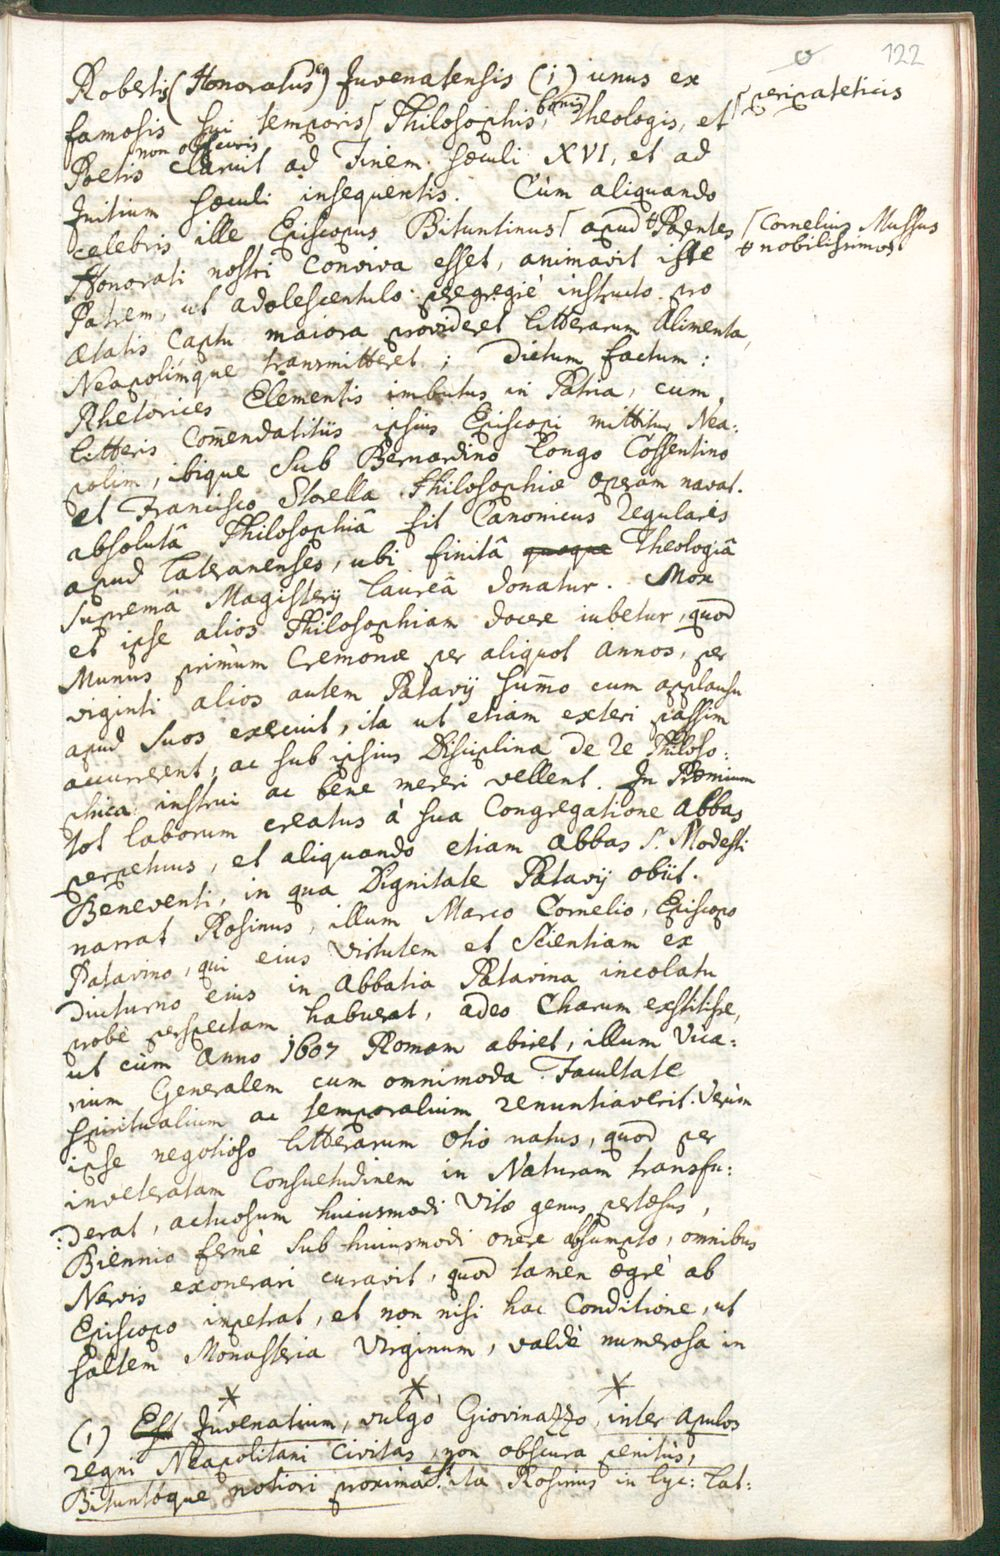 122
Robertis (Honoratus de) Juvenatensis (1) unus ex
famosis sui temporis [ Philosophis, bonis Theologis, et
[ peripateticis
Poetis non obscuris claruit ad Finem sæculi XVI, et ad
Initium sæculi insequentis. Cùm aliquando
celebris ille Episcopus Bituntinus [ apud # Parentes
[ Cornelius Mussus
# nobilissimos
Honorati nostri conviva esset, animavit iste
Patrem, ut adolescentulo peregregiè instructo pro
Ætatis captu maiora provideret litterarum Alimenta,
Neapolimque transmitteret; Dictum factum:
Rhetorices Elementis imbutus in Patria, cum
litteris Com̄endatitiis ipsius Episcopi mittitur Nea:
polim, ibique sub Bernardino Longo Cossentino
et Francisco Storella Philosophiæ operam navat.
absolutâ Philosophiâ fit Canonicus Regularis
apud Lateranenses, ubi finitâ quoque Theologiâ
supremâ Magisterij laureâ donatur. Mox
et ipse alios Philosophiam docere iubetur, quod
Munus primùm Cremonæ per aliquot annos, per
viginti alios autem Patavij sum̄o cum applausu
apud suos exercuit, ita ut etiam exteri passim
accurrerent, ac sub ipsius Disciplina de re Philoso:
phica instrui ac bene mereri vellent. In Præmium
tot laborum creatus à sua Congregatione Abbas
perpetuus, et aliquando etiam abbas S. Modesti
Beneventi, in qua Dignitate Patavij obiit.
narrat Rosinus, illum Marco Cornelio, Episcopo
Patavino, qui eius Virtutem et Scientiam ex
diuturno eius in Abbatia Patavina incolatu
probè perspectam habuerat, adeo Charum exstitisse,
ut cùm Anno 1607 Romam abiret, illum Vica:
rium Generalem cum omnimoda Facultate
spiritualium ac temporalium renuntiaverit. Verùm
ipse negotioso litterarum otio natus, quod per
inveteratam Consuetudinem in Naturam transfu:
:derat, actuosum huiusmodi Vitæ genus pertæsus,
Biennio fermè sub huiusmodi onere absumpto, omnibus
Nervis exonerari curavit, quod tamen ægrè ab
Episcopo impetrat, et non nisi hac Conditione, ut
saltem Monasteria Virginum, valdè numerosa in
* * *
(1) Est Juvenatium, vulgò Giovinazzo, inter Apulos
regni Neapolitani Civitas, non obscura penitùs,
Bituntóque notiori proxima est. ita Rosinus in Lyc: Lat: